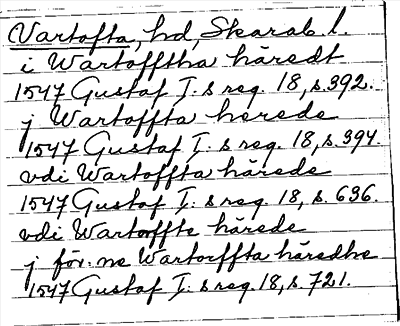 Vartofta, hd, Skarab. l.
i Wartofftha häredt
1547 Gustaf I: s reg. 18, s. 392.
j Wartoffta herede
1547 Gustaf I: s reg. 18, s. 394.
vdi Wartoffta härede
1547 Gustaf I: s reg. 18, s. 636.
vdi Wartorffte härede
j för: ne Wartorffta häredhe
1547 Gustaf I: s reg. 18, s. 721.